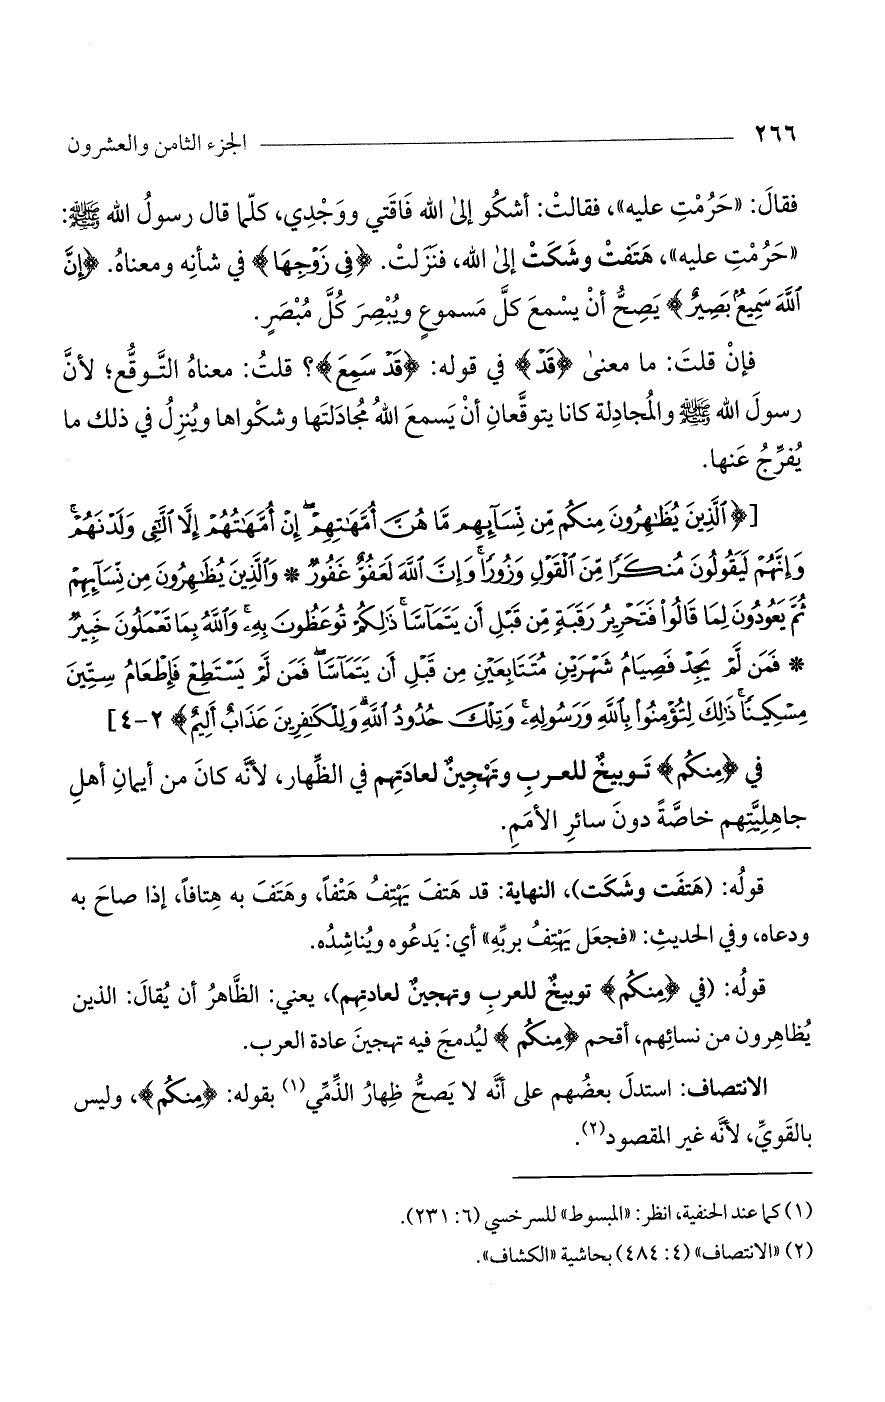 ٢٦٦ الجزء الثامن والعشرون
فقالَ: «حَرُمْتِ عليه»، فقالتْ: أشكُو إلىٰ الله فَاقَتي ووَجْدِي، كلّما قال رسولُ الله ﷺ:
«حَرُمْتِ عليه»، هَتَفتْ وشَكَتْ إلىٰ الله، فنَزَلتْ. ﴿فِي زَوْجِهَا﴾ في شأنِه ومعناهُ. ﴿إِنَّ
ٱللَّهَ سَمِيعٌ بَصِيرٌ﴾ يَصِحُّ أنْ يسْمعَ كلَّ مَسموعٍ ويُبْصِرَ كُلَّ مُبْصَرٍ.
فإنْ قلتَ: ما معنىٰ ﴿قَدْ﴾ في قوله: ﴿قَدْ سَمِعَ﴾؟ قلتُ: معناهُ التَّوقُّع؛ لأنَّ
رسولَ الله ﷺ والمُجادِلة كانا يتوقَّعانِ أنْ يَسمعَ اللهُ مُجَادَلتَها وشكْواها ويُنزِلُ في ذلك ما
يُفرِّجُ عَنها.
[﴿ٱلَّذِينَ يُظَٰهِرُونَ مِنكُم مِّن نِّسَآئِهِم مَّا هُنَّ أُمَّهَٰتِهِمْ ۖ إِنْ أُمَّهَٰتُهُمْ إِلَّا ٱلَّٰٓـِٔي وَلَدْنَهُمْ ۚ
وَإِنَّهُمْ لَيَقُولُونَ مُنكَرًا مِّنَ ٱلْقَوْلِ وَزُورًا ۚ وَإِنَّ ٱللَّهَ لَعَفُوٌّ غَفُورٌ * وَٱلَّذِينَ يُظَٰهِرُونَ مِن نِّسَآئِهِمْ
ثُمَّ يَعُودُونَ لِمَا قَالُوا۟ فَتَحْرِيرُ رَقَبَةٍ مِّن قَبْلِ أَن يَتَمَآسَّا ۚ ذَٰلِكُمْ تُوعَظُونَ بِهِۦ ۚ وَٱللَّهُ بِمَا تَعْمَلُونَ خَبِيرٌ
* فَمَن لَّمْ يَجِدْ فَصِيَامُ شَهْرَيْنِ مُتَتَابِعَيْنِ مِن قَبْلِ أَن يَتَمَآسَّا ۖ فَمَن لَّمْ يَسْتَطِعْ فَإِطْعَامُ سِتِّينَ
مِسْكِينًا ۚ ذَٰلِكَ لِتُؤْمِنُوا۟ بِٱللَّهِ وَرَسُولِهِۦ ۚ وَتِلْكَ حُدُودُ ٱللَّهِ ۗ وَلِلْكَٰفِرِينَ عَذَابٌ أَلِيمٌ﴾ ٢-٤]
في ﴿مِنكُم﴾ تَوبيخٌ للعربِ وتَهْجِينٌ لعادَتِهم في الظِّهار، لأنَّه كانَ من أيمانِ أهلِ
جاهِلِيَّتِهم خاصَّةً دونَ سائرِ الأمَمِ.
قولُه: (هَتفَت وشَكَت)، النهاية: قد هَتفَ يَهْتِفُ هَتْفاً، وهَتَفَ به هِتافاً، إذا صاحَ به
ودعاه، وفي الحديثِ: «فجعَل يَهْتِفُ بربِّهِ» أي: يَدعُوه ويُناشِدُه.
قولُه: (في ﴿مِنكُم﴾ توبيخٌ للعربِ وتهجينٌ لعادتِهم)، يعني: الظَّاهرُ أن يُقالَ: الذين
يُظاهِرون من نسائِهم، أقحم ﴿مِنكُم﴾ ليُدمجَ فيه تهجينَ عادة العرب.
الانتصاف: استدلَ بعضُهم على أنَّه لا يَصحُّ ظِهارُ الذِّمِّي(١) بقوله: ﴿مِنكُم﴾، وليس
بالقَويِّ، لأنَّه غير المقصود(٢).
(١) كما عند الحنفية، انظر: «المبسوط» للسرخسي (٦: ٢٣١).
(٢) «الانتصاف» (٤: ٤٨٤) بحاشية «الكشاف».